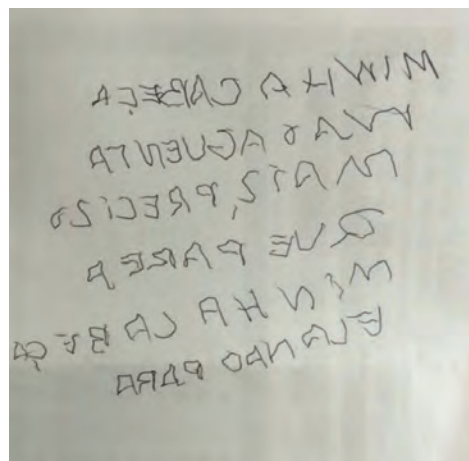 MINHA CABEÇA
NAO AGUENTA
MAIS, PRECISO
QUE PARE A
MINHA CABEÇA
ELA NAO PARA